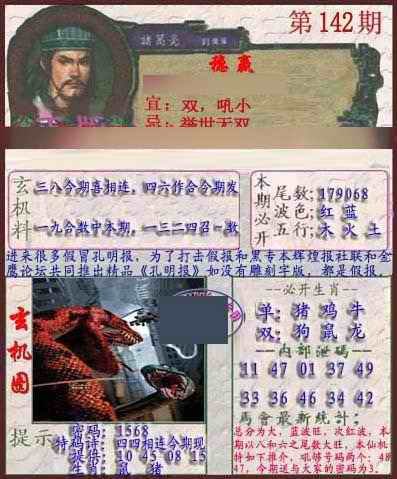 第142期
諸葛亮
稳赢
宜：双，吼小
忌：举世无双
玄机料
三八今期喜相连，四六作合今期发
一九合数中本期，一三二四召一数
本期必开
尾数：179068
波色：红 蓝
五行：木 火 土
进来很多假冒孔明报，为了打击假报和黑专本辉煌报社联和金
鹰论坛共同推出精品《孔明报》如没有雕刻字版，都是假报。
玄机图
提示
密码：1568
特码诗：四四相连今期现
提供：10 45 08 15
生肖：鼠 猪
--必开生肖--
单：猪 鸡 牛
双：狗 鼠 龙
--内部泄码--
11 47 01 37 49
33 36 46 34 42
馬會最新統計：
总分为大，蓝波旺，次红波，本
期以八和六之尾数大旺，本仙机
特如下推介，吼够号码两个：48
47，今期送与大家的密码为3。